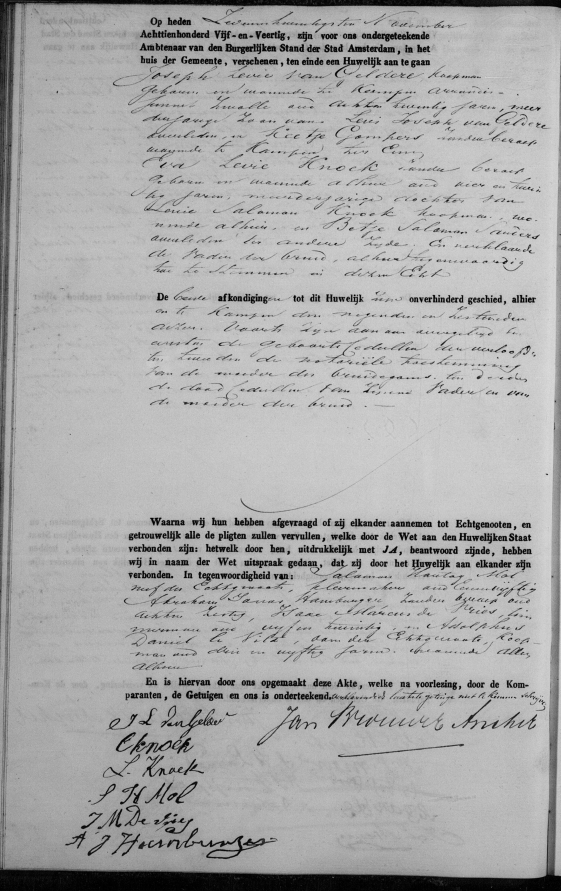 Op heden Zeven November
Achttienhonderd Vijf-en-Veertig, zijn voor ons ondergeteekende
Ambtenaar van den Burgerlijken Stand der Stad Amsterdam, in het
huis der Gemeente, verschenen, ten einde een Huwelijk aan te gaan
Joseph Levie van Geldere koopman
geboren en wonende te Kampen
Zwolle oud jaren, meer
derjarige Zoon van Levi Joseph van Geldere
overleden, en Keetje Gompers zonder beroep
wonende te Kampen, ter Eene
Eva Levie Knock zonder beroep
geboren en wonende alhier oud vier en twin
tig jaren, meerderjarige dochter van
Levie Salomon Knock koopman, wo-
nende alhier en Betje Salomon Sanders
overleden ter andere Zijde. En verklaarde
de Vader der bruid, alhier tegenwoordig
toe te stemmen in dezen Echt
De beide afkondigingen tot dit Huwelijk zijn onverhinderd geschied, alhier
en te Kampen den negenden en zestienden
dezer. Voorts zijn aan ons overgelegd ten
eerste de geboorte Cedullen der verloofden
ten tweede de notariële toestemming
van de moeder des bruidegoms ten derde
de dood Cedullen van zijnen Vader en van
de moeder der bruid. —
Waarna wij hun hebben afgevraagd of zij elkander aannemen tot Echtgenooten, en
getrouwelijk alle de pligten zullen vervullen, welke door de Wet aan den Huwelijken Staat
verbonden zijn: hetwelk door hen, uitdrukkelijk met JA, beantwoord zijnde, hebben
wij in naam der Wet uitspraak gedaan, dat zij door het Huwelijk aan elkander zijn
verbonden. In tegenwoordigheid van: Salomon Hartog Mol
der Echtgenoote, kleermaker oud
Abraham Jonas zonder beroep oud
zestig, Isaac Marcus de Vries, Tim
merman oud vijf en twintig, en Adolphus
Daniel de Vita oom der Echtgenoote, Koop-
man oud drie en vijftig jaren. wonende allen
alhier
En is hiervan door ons opgemaakt deze Akte, welke na voorlezing, door de Kom-
paranten, de Getuigen en ons is onderteekend. laatste getuige niet te kunnen schrijven
J L van Gelder
Jan Brouwer Ancher
E knoek
L. Knoek
S H Mol
J M De Vries
A J